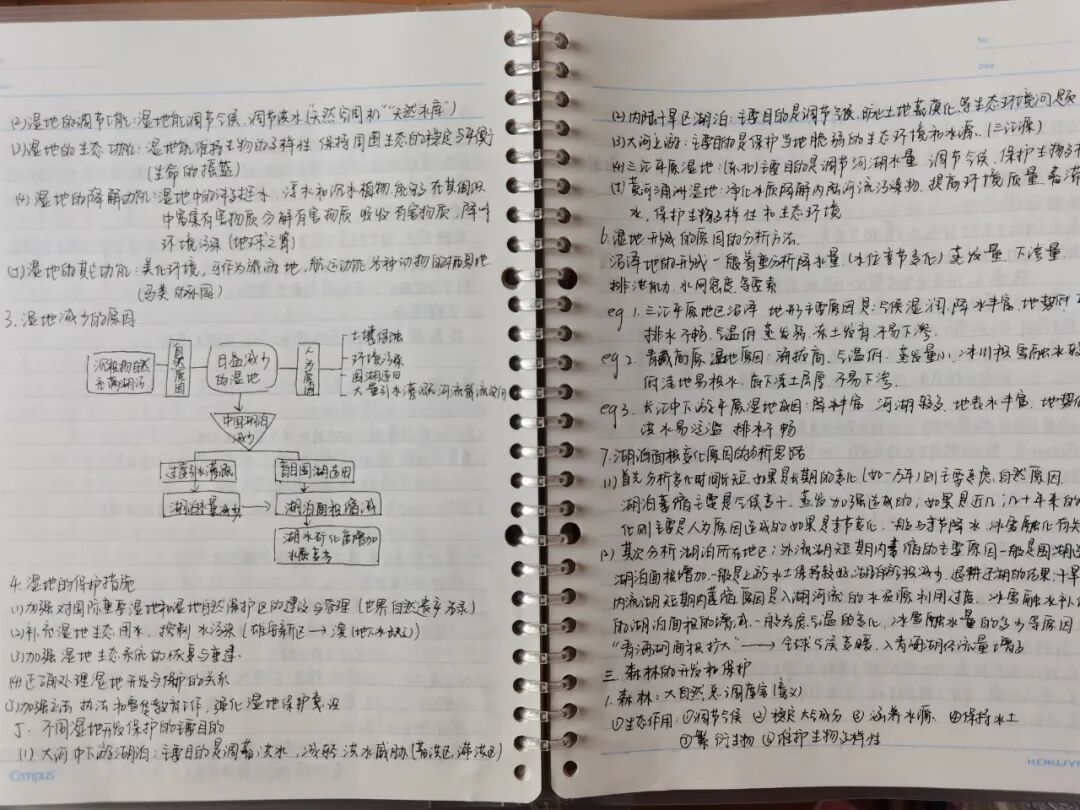 (2)湿地的调节功能:湿地能调节气候、调节洪水(天然空调和"天然水库")
(3)湿地的生态功能:湿地能维持生物的多样性 保持周围生态的稳定与平衡
(生命的摇篮)
(4)湿地的降解功能:湿地中的许多挺水、浮水和沉水植物,能够在其
中富集有害物质 分解有害物质 吸收有害物质,降
环境污染(地球之肾)
(5)湿地的其他功能:美化环境,可作为旅游地,航运功能 各种动物的栖息地.
(鸟类的乐园)
3.湿地减少的原因
沉积物自然
充填湖沼
自然原因
日益减少
的湿地
人为原因
土壤侵蚀
环境污染
围湖造田
大量引水灌溉,河流
中国湖泊
减少
过度引水灌溉
盲目围湖造田
湖泊水量减少
湖泊面积缩减
湖水矿化度增加
水质变劣
4.湿地的保护措施
(1)加强对国际重要湿地和湿地自然保护区的建设与管理(世界自然遗产名录)
(2)补充湿地生态用水,控制水污染(雄安新区→淀(地下水缺乏))
(3)加强湿地生态系统的恢复与重建.
(4)正确处理湿地开发与保护的关系
(5)加强立法 执法和宣传教育工作,强化湿地保护意识
5.不同湿地开发保护的主要目的
(1)大河中下游湖泊:主要目的是调蓄洪水,减轻洪水威胁(蓄洪区,滞洪区)
Campus
No.
Date
(2)内陆干旱区湖泊:主要目的是调节气候,防止土地荒漠化等生态环境问题
(3)大河上游:主要目的是保护当地脆弱的生态环境和水源.(三江源)
(4)三江平原湿地:(东北)主要目的是调节河湖水量 调节气候、保护生物多
(5)黄河湖洲湿地:净化水质降解内陆河流污染物,提高环境质量 蓄滞
水,保护生物多样性和生态环境
6.湿地形成的原因的分析方法.
沼泽地的形成一般着重分析降水量(水位季节变化)蒸发量、下渗量、
排泄能力、水网密度等要素
eg 1.三江平原地区沼泽 地形主要原因是:气候湿润,降水丰富,地势
排水不畅,气温低 蒸发弱,冻土发育不易下渗.
eg 2.青藏高原湿地原因:海拔高、气温低、蒸发量小,冰川积雪融水
低洼地易积水,底下冻土层厚,不易下渗.
eg 3.长江中下游平原湿地成因:降水丰富 河湖较多,地表水丰富,地势
洪水易泛滥 排水不畅
7.湖泊面积变化原因的分析思路
(1)首先分析变化时间长短.如果是长期的变化(如一万年)则主要考虑自然原因.
湖泊萎缩主要是气候变干,蒸发加强造成的;如果是近几、几十年来的
化则主要是人为原因造成的如果是季节变化,一般与季节降水、冰雪融化有关
(2)其次分析湖泊所在地区:外流湖短期内萎缩的主要原因一般是围湖
湖泊面积增加一般是上游水土保持较好,湖泊淤积减少,退耕还湖的结果;干旱
内流湖短期内萎缩原因是入湖河流的水资源利用过度,冰雪融水补
的湖泊面积的增减,一般考虑气温的变化,冰雪融水量的多少等原因
"青海湖面积扩大"→全球气候变暖,入青海湖径流量增多
三.森林的开发和保护
1.森林:大自然总调度室(意义)
①生态作用:①调节气候 ②稳定大气成分 ③涵养水源 ④保持水土
⑤繁衍生物 ⑥维护生物多样性
KOKUYO